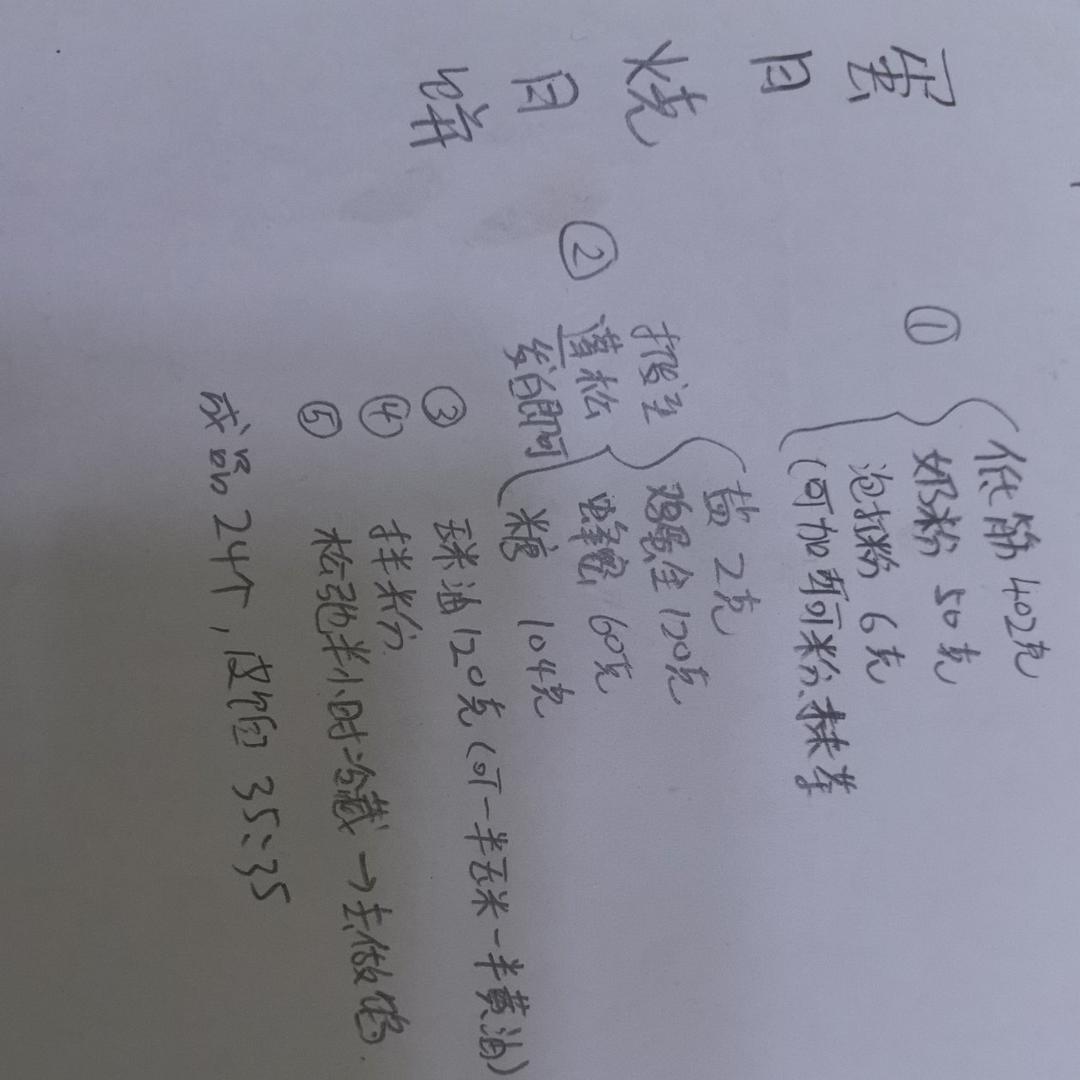 蛋月烧月饼
① 低筋402克
奶粉 50克
泡打粉 6克
(可加可可粉、抹茶
② 盐 2克
鸡蛋全120克
蜂蜜 60克
糖 104克
蓬松
发白即可
③ 玉米油120克(可一半玉米一半黄油)
④ 拌粉
⑤ 松弛半小时冷藏→去做馅.
成品24个,皮馅 35:35